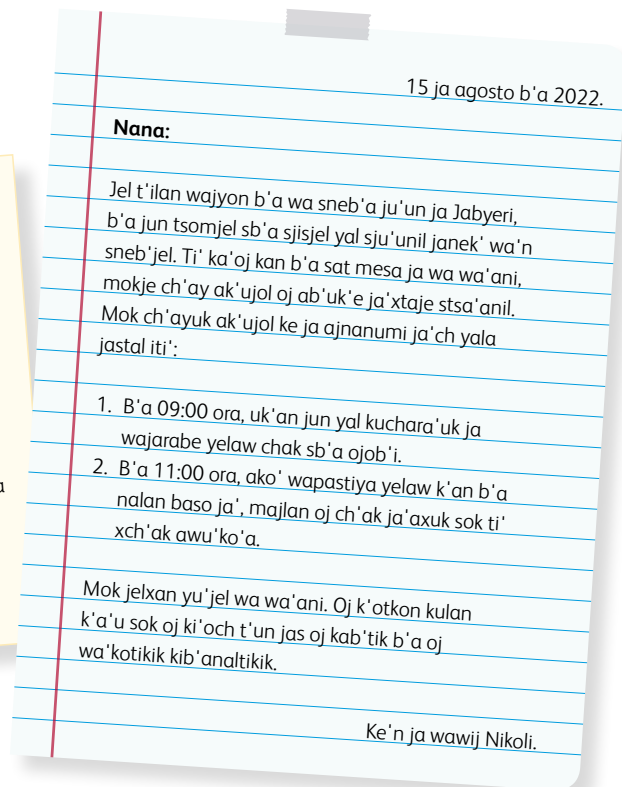 15 ja agosto b'a 2022.
Nana:
Jel t'ilan wajyon b'a wa sneb'a ju'un ja Jabyeri,
b'a jun tsomjel sb'a sjisjel yal sju'unil janek' wa'n
sneb'jel. Ti' ka'oj kan b'a sat mesa ja wa wa'ani,
mokje ch'ay ak'ujol oj ab'uk'e ja'xtaje stsa'anil.
Mok ch'ayuk ak'ujol ke ja ajnanumi ja'ch yala
jastal iti':
1. B'a 09:00 ora, uk'an jun yal kuchara'uk ja
wajarabe yelaw chak sb'a ojob'i.
2. B'a 11:00 ora, ako' wapastiya yelaw k'an b'a
nalan baso ja', majlan oj ch'ak ja'axuk sok ti'
xch'ak awu'ko'a.
Mok jelxan yu'jel wa wa'ani. Oj k'otkon kulan
k'a'u sok oj ki'och t'un jas oj kab'tik b'a oj
wa'kotikik kib'analtikik.
Ke'n ja wawij Nikoli.
a